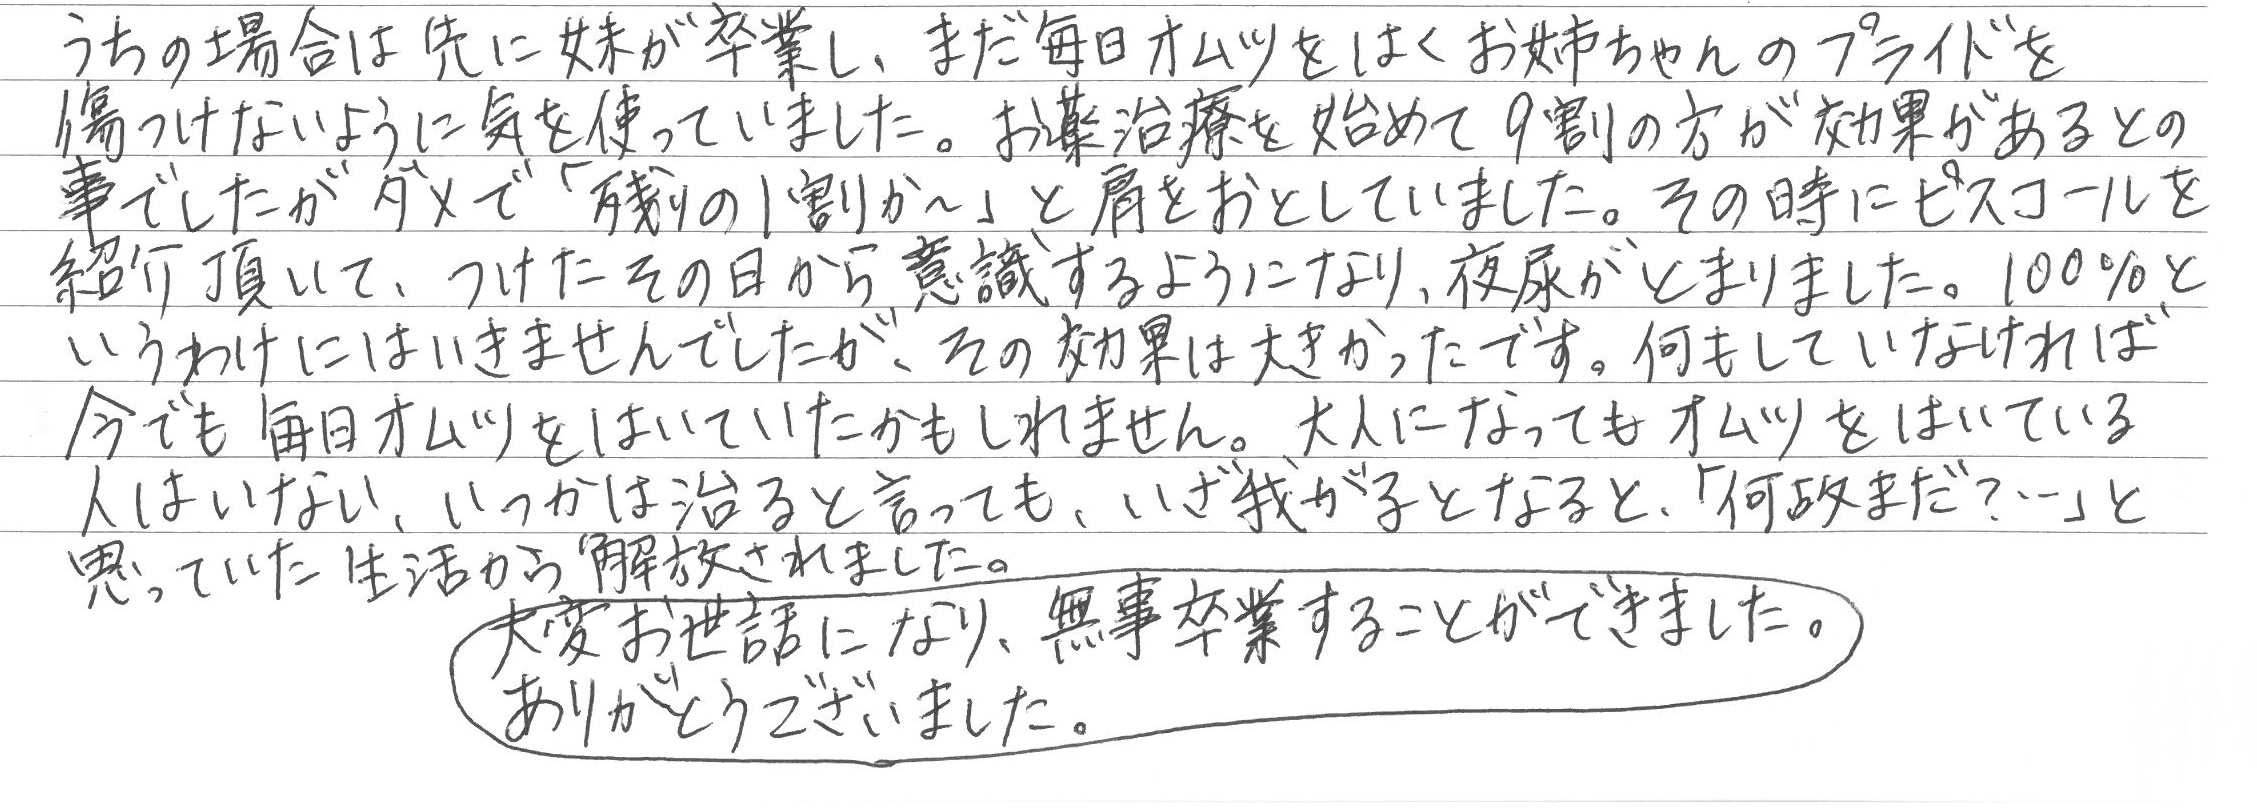 うちの場合は先に妹が卒業し、まだ毎日オムツをはくお姉ちゃんのプライドを
傷つけないように気を使っていました。お薬治療を始めて9割の方が効果があるとの
事でしたがダメで「残りの1割か〜」と肩をおとしていました。その時にピスコールを
紹介頂いて、つけたその日から意識するようになり、夜尿がとまりました。100%と
いうわけにはいきませんでしたが、その効果は大きかったです。何もしていなければ
今でも毎日オムツをはいていたかもしれません。大人になってもオムツをはいている
人はいない、いつかは治ると言っても、いざ我が子となると、「何故まだ?…」と
思っていた生活から解放されました。
大変お世話になり、無事卒業することができました。
ありがとうございました。